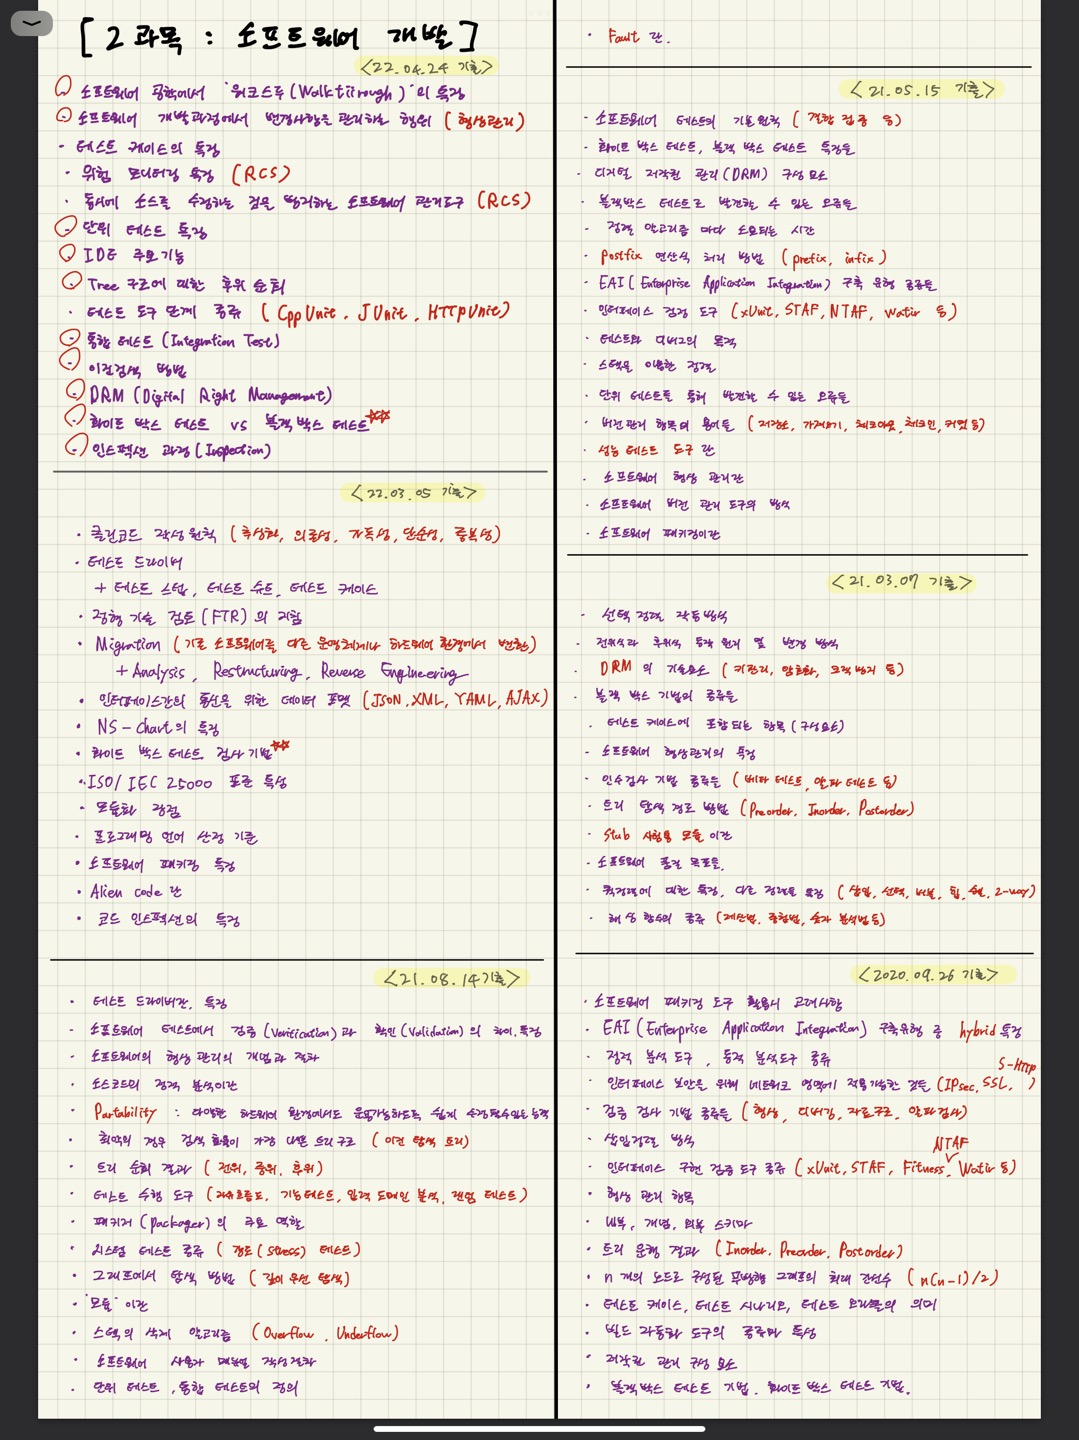 [ 2과목 : 소프트웨어 개발 ]
<22.04.24 기출>
소프트웨어 공학에서 '워크스루(Walkthrough)'의 특징
· 소프트웨어 개발과정에서 변경사항을 관리하는 행위 (형상관리)
· 테스트 케이스의 특징
· 위험 모니터링 특징 (RCS)
· 동시에 소스를 수정하는 것을 방지하는 소프트웨어 관리도구 (RCS)
· 단위 테스트 특징
· IDE 주요기능
· Tree 구조에 대한 후위 순회
· 테스트 도구 단계 종류 (CppUnit, JUnit, HTTpUnit)
· 통합 테스트 (Integration Test)
· 이진검색 방법
· DRM (Digital Right Management)
· 화이트 박스 테스트 vs 블랙박스 테스트
· 인스펙션 과정 (Inspection)
<22.03.05 기출>
· 클린코드 작성원칙 (추상화, 의존성, 가독성, 단순성, 중복성)
· 테스트 드라이버
+ 테스트 스텁, 테스트 슈트, 테스트 케이스
· 정형 기술 검토(FTR)의 지침
· Migration (기존 소프트웨어를 다른 운영체제나 하드웨어 환경에서 변환)
+ Analysis, Restructuring, Reverse Engineering
· 인터페이스간의 통신을 위한 데이터 포맷 (JSON, XML, YAML, AJAX)
· NS-Chart의 특징
· 화이트 박스 테스트 검사기법
· ISO/IEC 25000 표준 특성
· 모듈화 장점
· 프로그래밍 언어 선정 기준
· 소프트웨어 패키징 특징
· Alien code 란
· 코드 인스펙션의 특징
<21.08.14 기출>
· 테스트 드라이버란, 특징
· 소프트웨어 테스트에서 검증(Verification)과 확인(Validation)의 차이, 특징
· 소프트웨어의 형상 관리의 개념과 절차
· 소스코드의 정적 분석이란
· Portability : 다양한 하드웨어 환경에서도 운용가능하도록 쉽게 수정될수있는 능력
· 최악의 경우 검색 효율이 가장 나쁜 트리구조 (이진 탐색 트리)
· 트리 순회 결과 (전위, 중위, 후위)
· 테스트 수행 도구 (자료흐름도, 기능테스트, 입력 도메인 분석, 랜덤 테스트)
· 패키저(packager)의 주요 역할
· 시스템 테스트 종류 (강도(stress) 테스트)
· 그래프에서 탐색 방법 (깊이 우선 탐색)
· "모듈" 이란
· 스택의 삭제 알고리즘 (Overflow, Underflow)
· 소프트웨어 사용자 매뉴얼 작성절차
· 단위 테스트, 통합 테스트의 정의
· Fault 란.
<21.05.15 기출>
· 소프트웨어 테스트의 기본원칙 (결함 집중 등)
· 화이트 박스 테스트, 블랙 박스 테스트 특징들
· 디지털 저작권 관리(DRM) 구성요소
· 블랙박스 테스트로 발견할 수 있는 오류들
· 정렬 알고리즘 마다 소요되는 시간
· postfix 연산식 처리 방법 (prefix, infix)
· EAI (Enterprise Application Integration) 구축 유형 종류들
· 인터페이스 검증 도구 (xUnit, STAF, NTAF, Watir 등)
· 테스트와 디버그의 목적
· 스택을 이용한 정렬
· 단위 테스트를 통해 발견할 수 있는 오류들
· 버전관리 항목의 용어들 (저장소, 가져오기, 체크아웃, 체크인, 커밋 등)
· 성능 테스트 도구란
· 소프트웨어 형상 관리란
· 소프트웨어 버전 관리 도구의 방식
· 소프트웨어 패키징이란
<21.03.07 기출>
· 선택 정렬 작동방식
· 전위식과 후위식 동작 원리 및 변경 방식
· DRM의 기술요소 (키관리, 암호화, 크랙방지 등)
· 블랙 박스 기법의 종류들
· 테스트 케이스에 포함되는 항목 (구성요소)
· 소프트웨어 형상관리의 특징
· 인수검사 기법 종류들 (베타 테스트, 알파 테스트 등)
· 트리 탐색 경로 방법 (Preorder, Inorder, Postorder)
· Stub 시험용 모듈이란
· 소프트웨어 품질 목표들.
· 퀵정렬에 대한 특징, 다른 정렬들 특징 (삽입, 선택, 버블, 힙, 쉘, 2-way)
· 해싱 함수의 종류 (제산법, 중첩법, 숫자 분석법 등)
<2020.09.26 기출>
· 소프트웨어 패키징 도구 활용시 고려사항
· EAI (Enterprise Application Integration) 구축유형 중 hybrid 특징
· 정적 분석 도구, 동적 분석도구 종류
· 인터페이스 보안을 위해 네트워크 영역에 적용가능한 것들 (IPsec, SSL, S-HTTP)
· 검증 검사 기법 종류들 (형상, 디버깅, 자료구조, 알파검사)
· 삽입정렬 방식
· 인터페이스 구현 검증 도구 종류 (xUnit, STAF, Fitness, NTAF Watir 등)
· 형상 관리 항목
· 내부, 개념, 외부 스키마
· 트리 운행 결과 (Inorder, Preorder, Postorder)
· n 개의 노드로 구성된 무방향 그래프의 최대 간선수 (n(n-1)/2)
· 테스트 케이스, 테스트 시나리오, 테스트 오라클의 의미
· 빌드 자동화 도구의 종류와 특성
· 저작권 관리 구성 요소
· 블랙박스 테스트 기법, 화이트박스 테스트 기법.